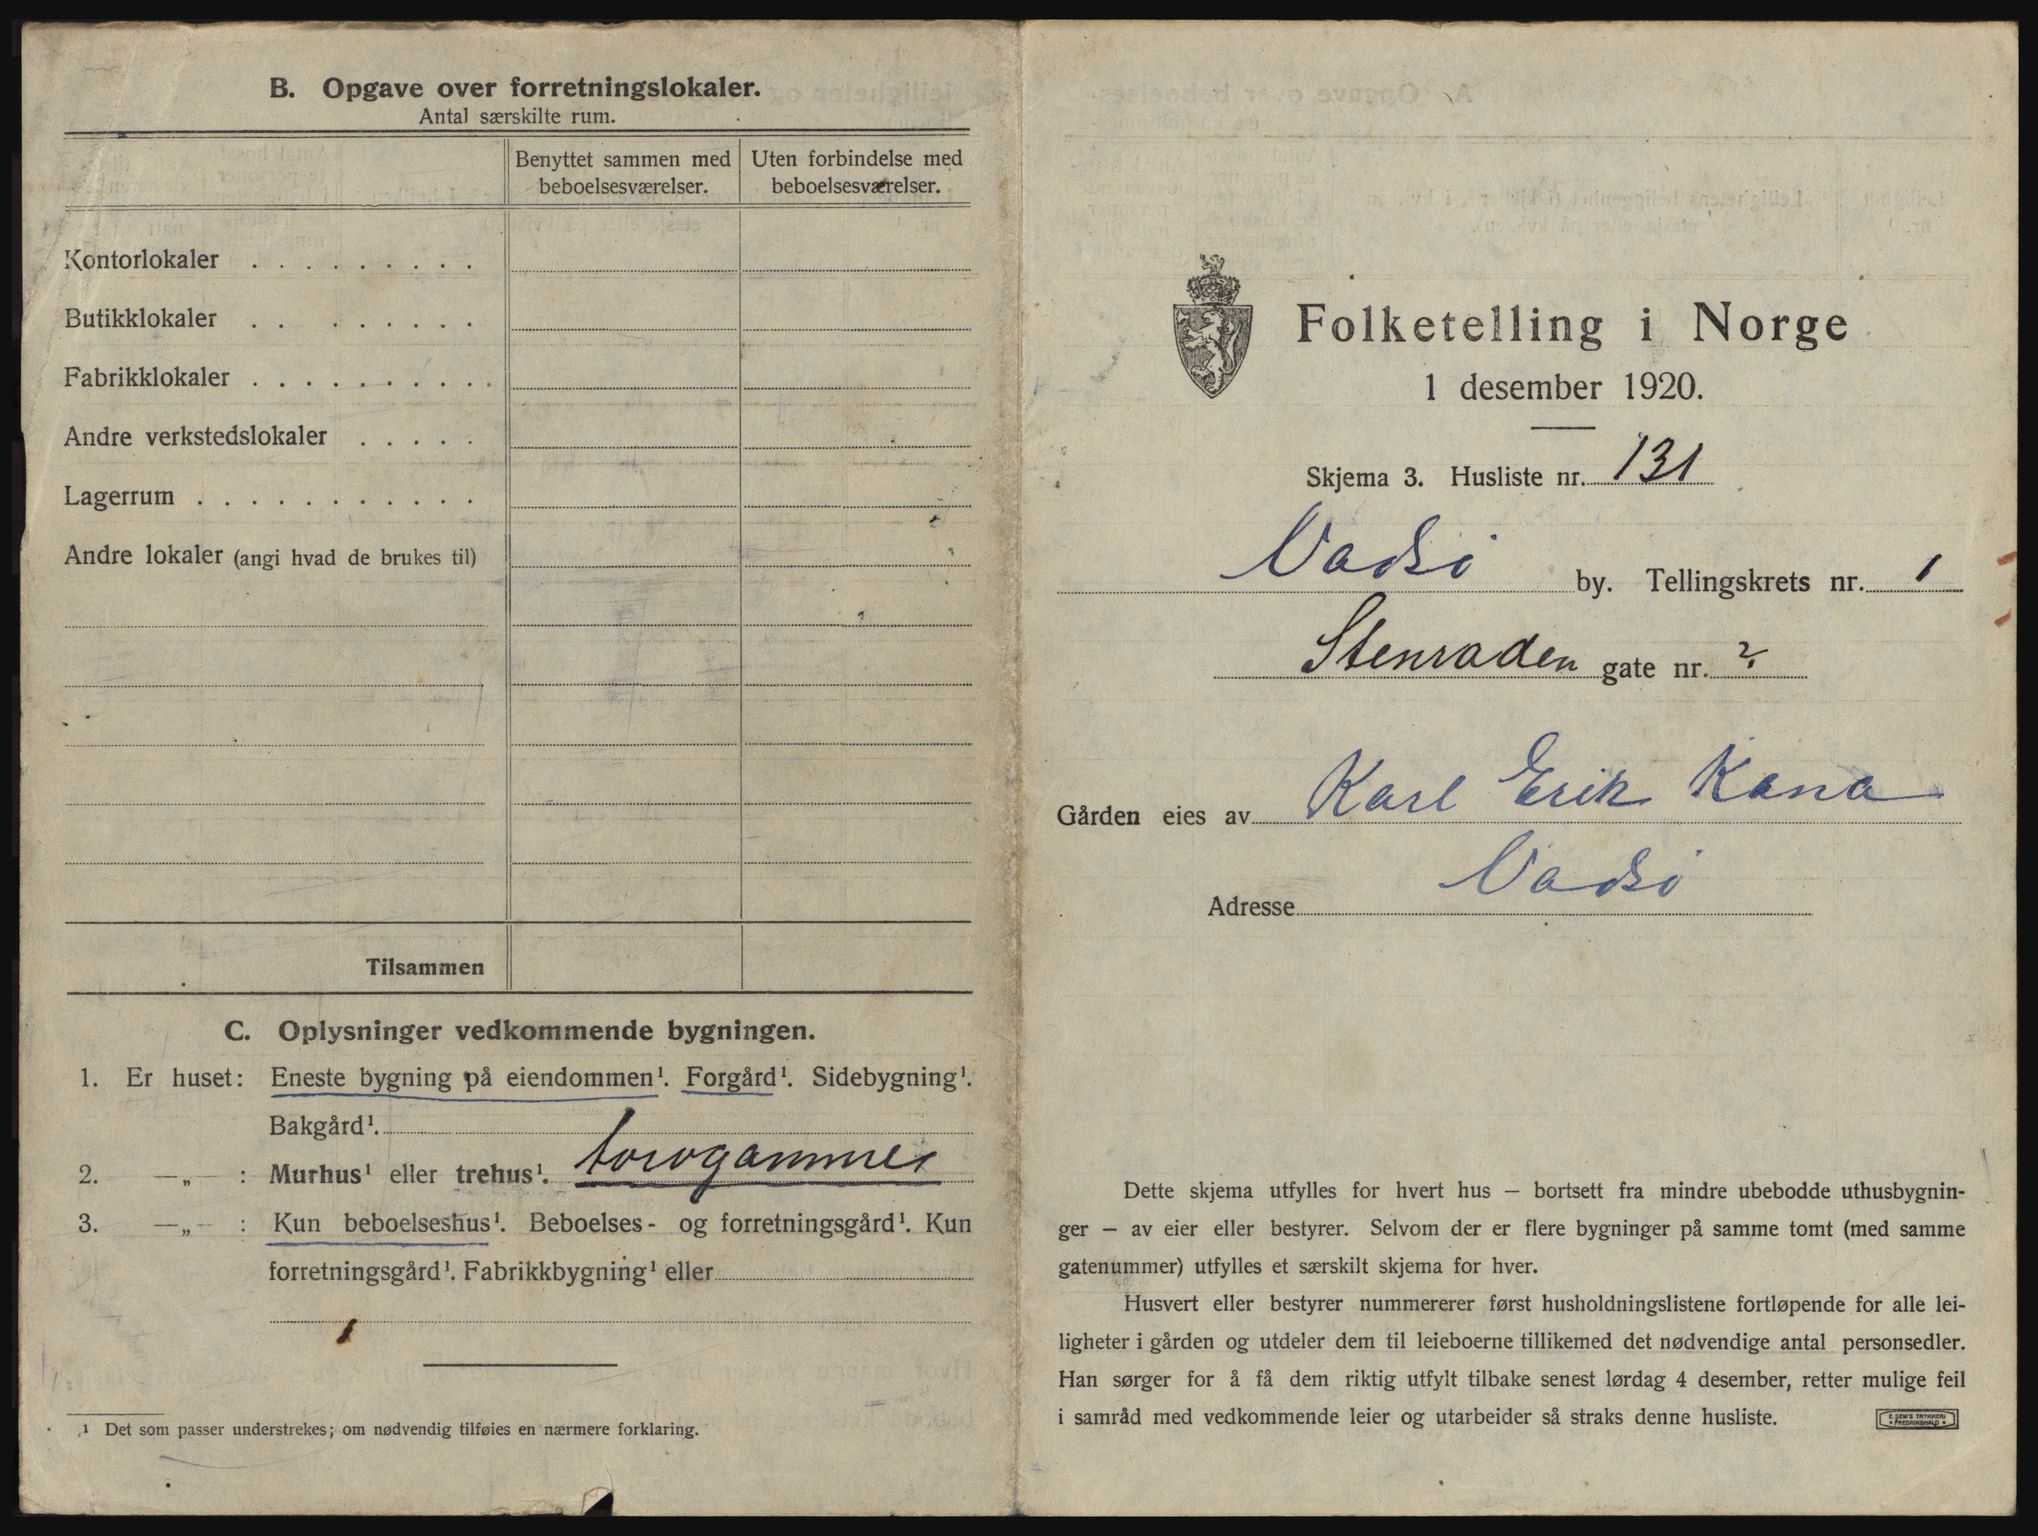 B. Opgave over forretningslokaler.
Antal særskilte rum.
Benyttet sammen med beboelsesværelser.
Uten forbindelse med beboelsesværelser.
Kontorlokaler . . . . . . . . .
Butikklokaler . . . . . . . .
Fabrikklokaler . . . . . . . . . .
Andre verkstedslokaler . . . . .
Lagerrum . . . . . . . . . . .
Andre lokaler (angi hvad de brukes til)
Tilsammen
C. Oplysninger vedkommende bygningen.
1. Er huset: Eneste bygning på eiendommen¹. Forgård¹. Sidebygning¹.
Bakgård¹.
2. —„— : Murhus¹ eller trehus¹.
3. —„— : Kun beboelseshus¹. Beboelses- og forretningsgård¹. Kun
forretningsgård¹. Fabrikkbygning¹ eller
¹ Det som passer understrekes; om nødvendig tilføies en nærmere forklaring.
Folketelling i Norge
1 desember 1920.
Skjema 3. Husliste nr. 131
Vadsö by. Tellingskrets nr. 1
Stenraden gate nr. 2.
Gården eies av Karl Erik Kana
Adresse Vadsö
Dette skjema utfylles for hvert hus — bortsett fra mindre ubebodde uthusbygnin-
ger — av eier eller bestyrer. Selvom der er flere bygninger på samme tomt (med samme
gatenummer) utfylles et særskilt skjema for hver.
Husvert eller bestyrer nummererer først husholdningslistene fortløpende for alle lei-
ligheter i gården og utdeler dem til leieboerne tillikemed det nødvendige antal personsedler.
Han sørger for å få dem riktig utfylt tilbake senest lørdag 4 desember, retter mulige feil
i samråd med vedkommende leier og utarbeider så straks denne husliste.
E. SEM'S TRYKKERI
FREDRIKSHALD